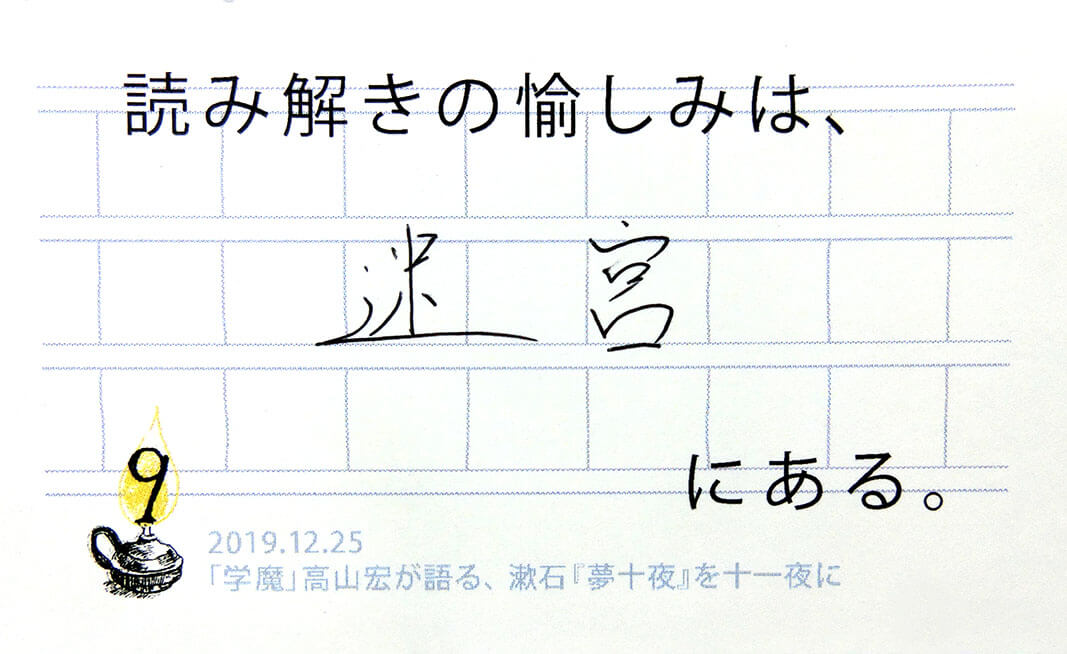 読み解きの愉しみは、
迷宮
にある。
9
2019.12.25
「学魔」高山宏が語る、漱石『夢十夜』を十一夜に